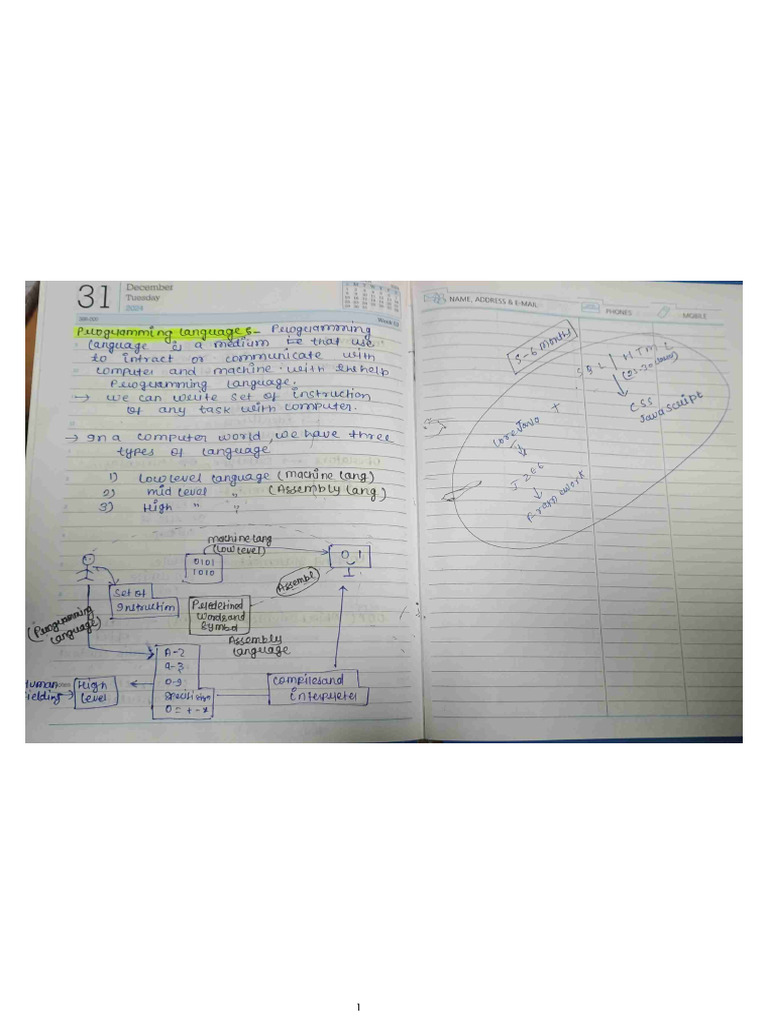 31
December
Tuesday
2024
366-000
Week 53
Programming Languages- Programming
Language is a medium that use
to intract or communicate with
computer and machine with the help
Programming language.
→ we can write set of instruction
of any task with computer.
→ In a computer world, we have three
types of language
1) Low level language (Machine lang)
2) mid level " (Assembly lang.)
3) High " "
machine lang
(Low level)
0101
1010
0 1
Set of
instruction
Predefined
words and
symbol
Assembly
Language
Assembl
(Programming
Language)
A-Z
a-z
0-9
0 = + - *
High
Level
Human
compiles and
interpreter
NAME, ADDRESS & E-MAIL
PHONES
MOBILE
5-6 Months
HTML
CSS
JavaScript
Core Java +
J2EE
1